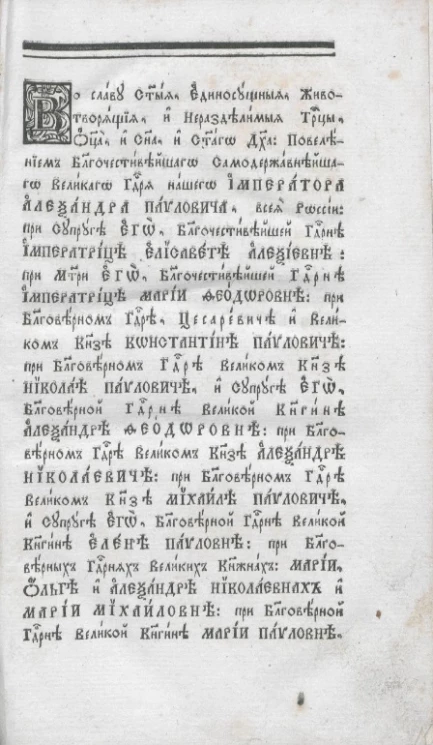 Во славу Ст҃ыѧ, Єдиносущныѧ, Живо-
творѧщїѧ, и҆ Нераздѣлимыѧ Трⷪ҇цы,
Ѻ҆ц҃а̀, и҆ Сн҃а, и҆ Ст҃агѡ Дх҃а: Повелѣ-
нїемъ Благочестивѣйшагѡ Самодержавнѣйша-
гѡ Великагѡ Гдⷭ҇рѧ нашегѡ І҆МПЕРАТОРА
А҆ЛЕѮАНДРА ПАѴЛОВИЧА, всеѧ̀ Рѡссїи:
при Сꙋпрꙋгѣ Є҆ГѠ̀, Благочестивѣйшей Гдⷭ҇рнѣ
І҆МПЕРАТРИЦѢ Є҆ЛІСАВЕТѢ А҆ЛЕѮІЕВНѢ:
при Мт҃ри Є҆ГѠ̀, Благочестивѣйшей Гдⷭ҇рнѣ
І҆МПЕРАТРИЦѢ МАРІИ ѲЕѺДѠРОВНѢ: при
Благовѣрномъ Гдⷭ҇рѣ, Цесаревичѣ и҆ Вели-
комъ Кнѧ҃зѣ КѠНСТАНТІНѢ ПАѴЛОВИЧѢ:
при Благовѣрномъ Гдⷭ҇рѣ Великомъ Кнѧ҃зѣ
НІКОЛАѢ ПАѴЛОВИЧѢ, и҆ Сꙋпрꙋгѣ Є҆ГѠ̀,
Благовѣрной Гдⷭ҇рнѣ Великой Кнѧ҃гинѣ
А҆ЛЕѮАНДРѢ ѲЕѺДѠРОВНѢ: при Благо-
вѣрномъ Гдⷭ҇рѣ Великомъ Кнѧ҃зѣ А҆ЛЕѮАНДРѢ
НІКОЛАЕВИЧѢ: при Благовѣрномъ Гдⷭ҇рѣ
Великомъ Кнѧ҃зѣ МІХАИЛѢ ПАѴЛОВИЧѢ,
и҆ Сꙋпрꙋгѣ Є҆ГѠ̀, Благовѣрной Гдⷭ҇рнѣ Великой
Кнѧ҃гинѣ Є҆ЛЕНѢ ПАѴЛОВНѢ: при Благо-
вѣрныхъ Гдⷭ҇рнѧхъ Великихъ Кнѧ҃жнахъ: МАРІИ,
Ѻ҆ЛЬГѢ и҆ А҆ЛЕѮАНДРѢ НІКОЛАЕВНАХЪ и҆
МАРІИ МІХАИЛОВНѢ: при Благовѣрной
Гдⷭ҇рнѣ Великой Кнѧ҃гинѣ МАРІИ ПАѴЛОВНѢ.